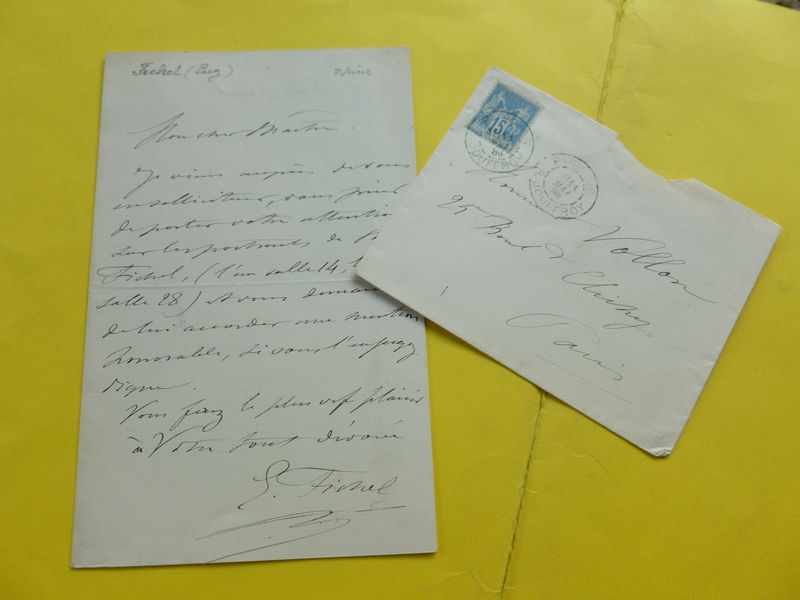 Fichel (Eug)
Mon cher Maître.
Je viens auprès de vous
en solliciteur, vous prier
de porter votre attention
sur les portraits de
Fichel, (l'un salle 14, l
salle 28) et vous deman
de lui accorder une mention
honorable, si vous l'en jugez
digne.
Vous ferez le plus vif plaisir
à Votre tout dévoué
E. Fichel
15
JOUFFROY
PARIS
R. JOUFFROY
Monsieur Vollon
25 Boul d Clichy
Paris